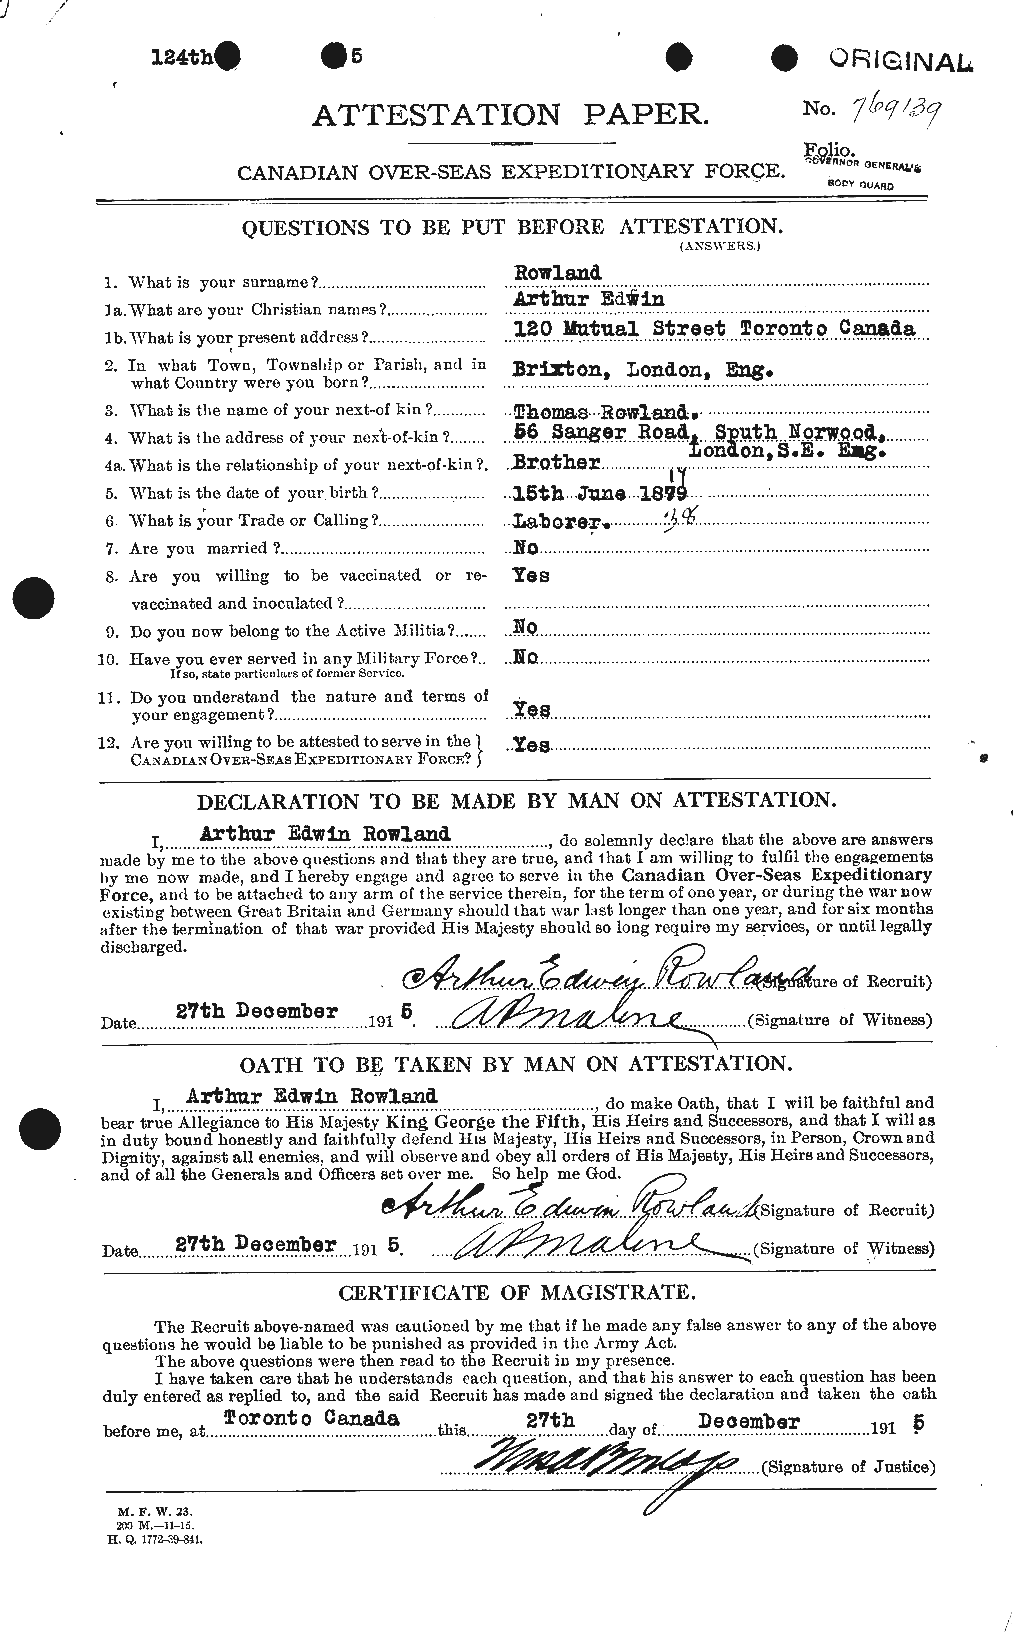 124th 5 ORIGINAL
ATTESTATION PAPER. No. 769139
Folio.
CANADIAN OVER-SEAS EXPEDITIONARY FORCE. GOVERNOR GENERAL'S
BODY GUARD
QUESTIONS TO BE PUT BEFORE ATTESTATION.
(ANSWERS.)
1. What is your surname? Rowland
1a. What are your Christian names? Arthur Edwin
1b. What is your present address? 120 Mutual Street Toronto Canada
2. In what Town, Township or Parish, and in
what Country were you born? Brixton, London, Eng.
3. What is the name of your next-of kin? Thomas Rowland.
4. What is the address of your next-of-kin? 56 Sanger Road, Sputh Norwood,
London, S.E. Eng.
4a. What is the relationship of your next-of-kin? Brother
5. What is the date of your birth? 15th June 1879
6. What is your Trade or Calling? Laborer. 38
7. Are you married? No
8. Are you willing to be vaccinated or re- Yes
vaccinated and inoculated?
9. Do you now belong to the Active Militia? No
10. Have you ever served in any Military Force? No
If so, state particulars of former Service.
11. Do you understand the nature and terms of
your engagement? Yes
12. Are you willing to be attested to serve in the Yes
CANADIAN OVER-SEAS EXPEDITIONARY FORCE?
DECLARATION TO BE MADE BY MAN ON ATTESTATION.
I, Arthur Edwin Rowland, do solemnly declare that the above are answers
made by me to the above questions and that they are true, and that I am willing to fulfil the engagements
by me now made, and I hereby engage and agree to serve in the Canadian Over-Seas Expeditionary
Force, and to be attached to any arm of the service therein, for the term of one year, or during the war now
existing between Great Britain and Germany should that war last longer than one year, and for six months
after the termination of that war provided His Majesty should so long require my services, or until legally
discharged.
Arthur Edwin Rowland (Signature of Recruit)
Date 27th December 1915. A P Malone (Signature of Witness)
OATH TO BE TAKEN BY MAN ON ATTESTATION.
I, Arthur Edwin Rowland, do make Oath, that I will be faithful and
bear true Allegiance to His Majesty King George the Fifth, His Heirs and Successors, and that I will as
in duty bound honestly and faithfully defend His Majesty, His Heirs and Successors, in Person, Crown and
Dignity, against all enemies, and will observe and obey all orders of His Majesty, His Heirs and Successors,
and of all the Generals and Officers set over me. So help me God.
Arthur Edwin Rowland (Signature of Recruit)
Date 27th December 1915. A P Malone (Signature of Witness)
CERTIFICATE OF MAGISTRATE.
The Recruit above-named was cautioned by me that if he made any false answer to any of the above
questions he would be liable to be punished as provided in the Army Act.
The above questions were then read to the Recruit in my presence.
I have taken care that he understands each question, and that his answer to each question has been
duly entered as replied to, and the said Recruit has made and signed the declaration and taken the oath
before me, at Toronto Canada this 27th day of December 1915
(Signature of Justice)
M. F. W. 23.
200 M.—11-15.
H. Q. 1772-39-841.